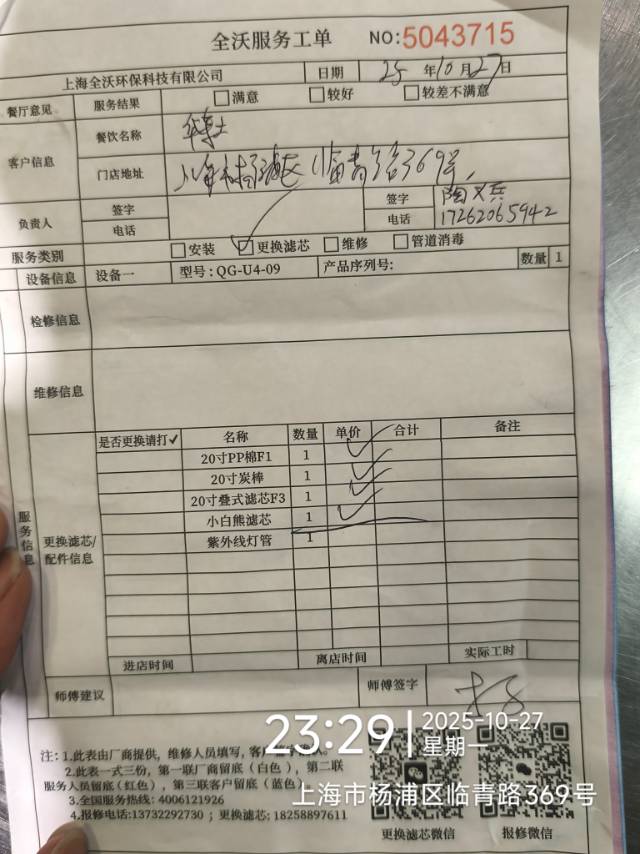 全沃服务工单 NO:5043715
上海全沃环保科技有限公司 日期 25 年 10 月 27 日
餐厅意见 服务结果 满意 较好 较差不满意
客户信息 餐饮名称 华莱士
门店地址 上海市杨浦区临青路369号
负责人 签字 签字 陶义兵
电话 电话 17262065942
服务类别 安装 ✓更换滤芯 维修 管道消毒
设备信息 设备一 型号:QG-U4-09 产品序列号: 数量 1
检修信息
维修信息
服务信息
更换滤芯/配件信息
是否更换请打✓ 名称 数量 单价 合计 备注
20寸PP棉F1 1 ✓
20寸炭棒 1 ✓
20寸叠式滤芯F3 1 ✓
小白熊滤芯 1 ✓
紫外线灯管 1
进店时间 离店时间 实际工时
师傅建议 师傅签字
注:1.此表由厂商提供，维修人员填写，客
2.此表一式三份，第一联厂商留底（白色），第二联
服务人员留底(红色)，第三联客户留底（蓝色）
3.全国服务热线: 4006121926
4.报修电话:13732292730 ; 更换滤芯: 18258897611
更换滤芯微信 报修微信
23:29 2025-10-27
星期一
上海市杨浦区临青路369号